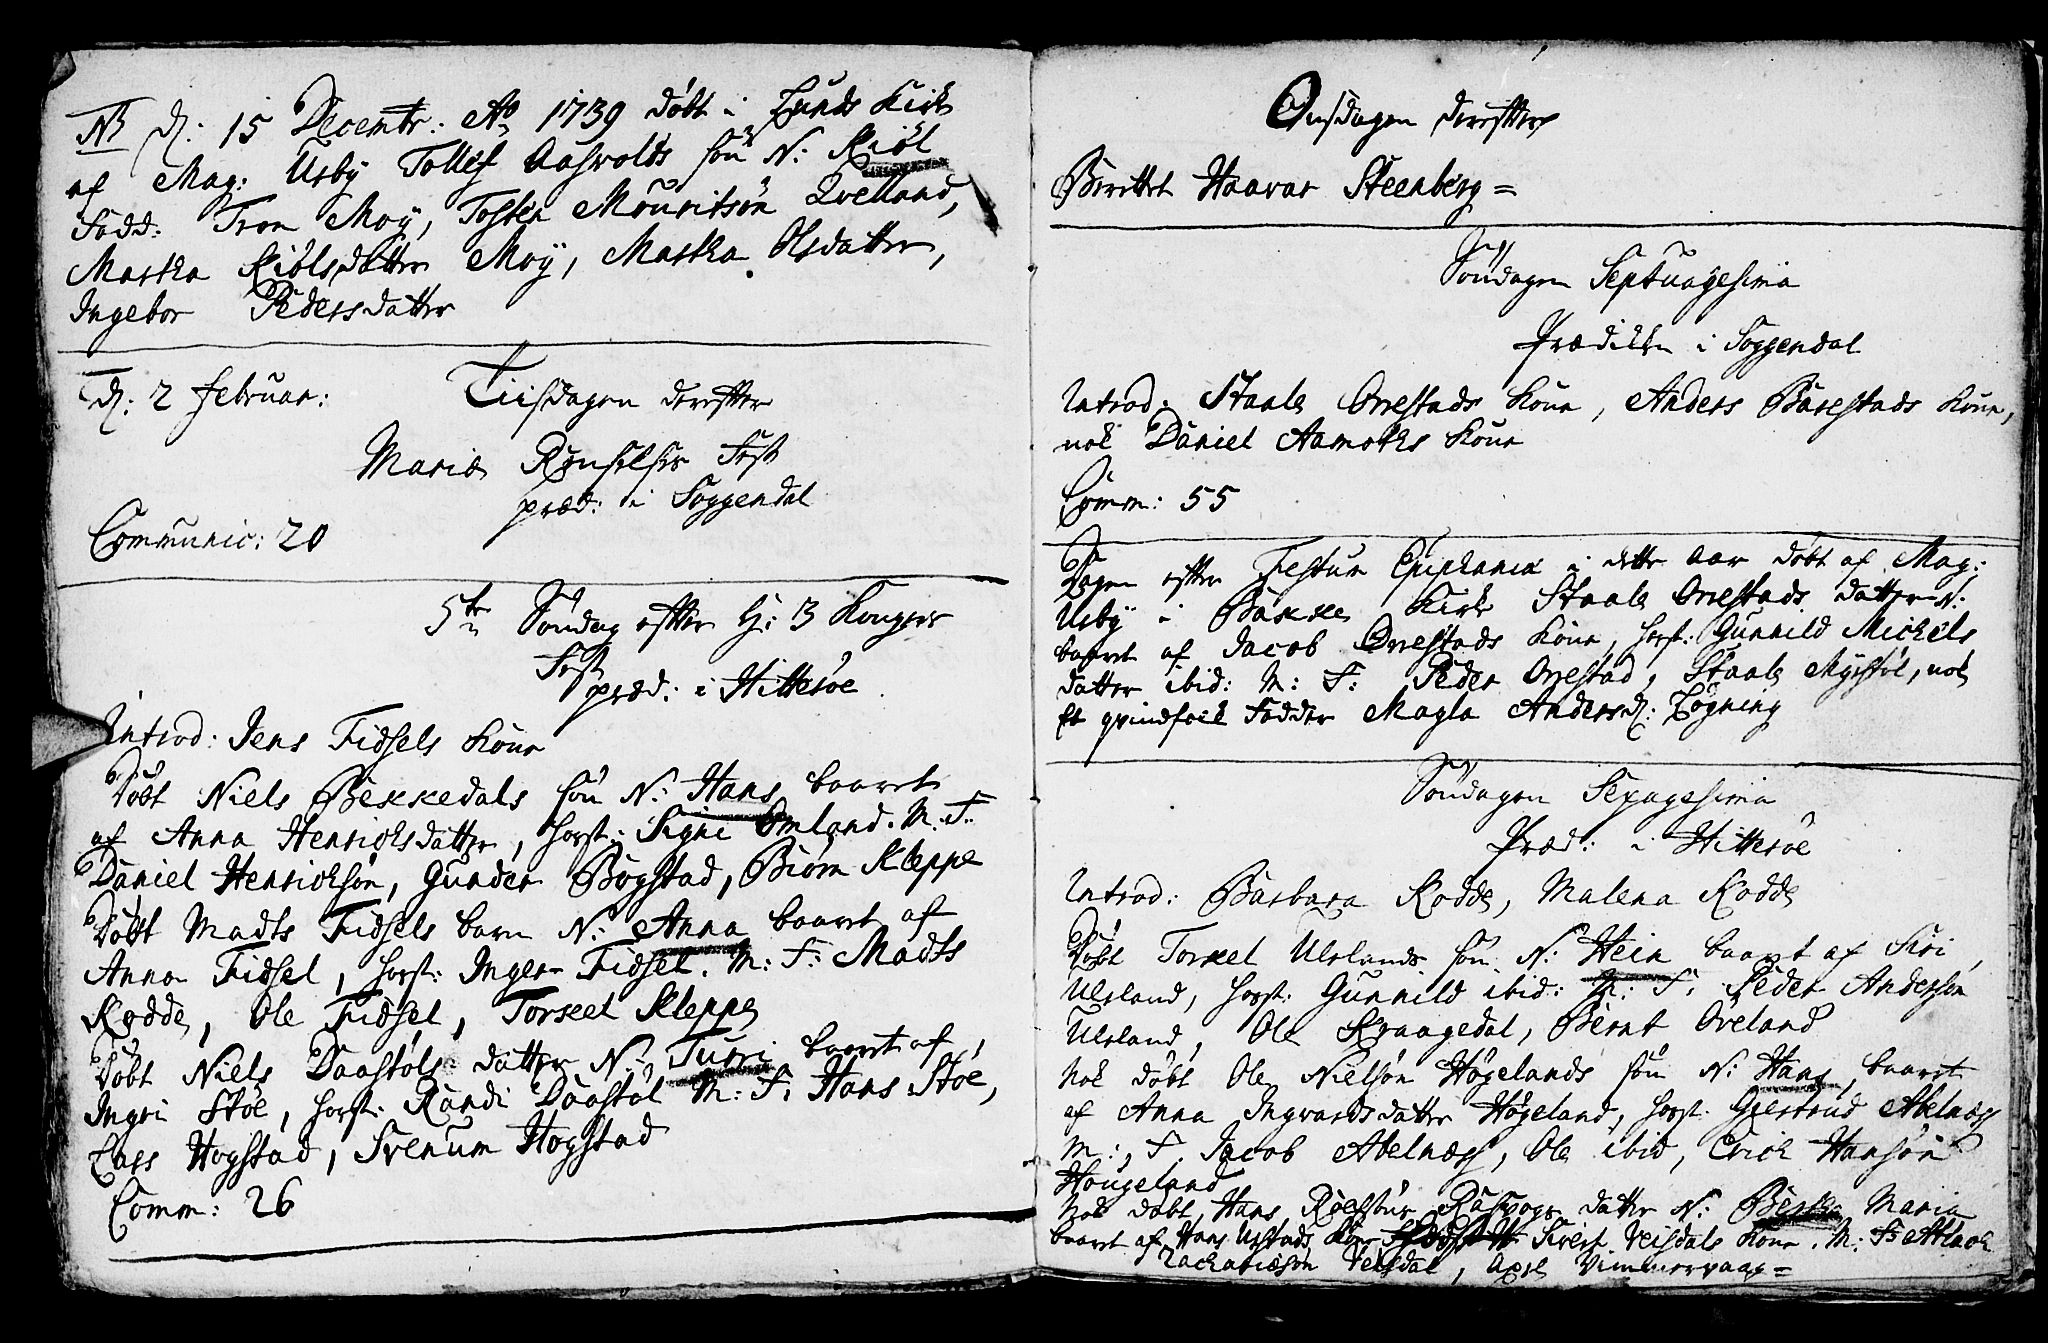 NB d: 15 Decembr: Ao 1739 døbt i Lunds Kirke
af Mag: Usby Tollef Aasvolds søn N: Kiøl
Fadd: Tron Moÿ, Tosten Mouritsøn Qvelland,
Martha Kiølsdatter Moÿ, Martha Olsdatter,
Ingebor Pedersdatter
d: 2 Februar: Tiisdagen derefter
Mariæ Renselses Fest
præd: i Soggendal
Communic: 20
5te Søndag efter H: 3 Kongers
Fest
præd: i Hitterøe
Introd: Jens Fidsels Kone
Døbt Niels Bekkedals søn N: Hans baaret
af Anna Henrichsdatter, horst: Signe Omland. M: F:
Daniel Henrichsøn, Gunder Bøgstad, Biørn Kleppe
Døbt Madts Fidsels barn N: Anna baaret af
Anna Fidsel, horst: Inger Fidsel. M: F: Madts
Rodde, Ole Fidsel, Torkel Kleppe
Døbt Niels Daastøls datter N: Turi baaret af
Ingri Støe, horst: Randi Daastøl M: F: Hans Støe,
Lars Hogstad, Svenum Hogstad
Comm: 26
Onsdagen derefter
Berettet Haavar Steenberg =
Søndagen Septuagesima
Prædiken i Soggendal
Introd: Staale Orrestads Kone, Anders Barestads Kone,
nok Daniel Aamoths Kone
Comm: 55
Dagen efter Festum Epiphaniæ i dette Aar døbt af Mag:
Usbÿ i Bakke Kirke Staale Orrestads datter N:
baaret af Jacob Orrestads Kone, horst: Gunnild Michels
datter ibid: M: F: Peder Orrestad, Staale Myrstøl, nok
Et qvindfolk Fadder Magla Andersd: Løgning
Søndagen Sexagesima
Præd: i Hitterøe
Introd: Barbara Rodde, Malena Rodde
Døbt Torkel Ulslands søn N: Hein baaret af Siri
Ulsland, horst: Gunnild ibid: M: F: Peder Anderssøn
Ulsland, Ole Kraagedal, Bernt Oveland
Nok døbt Ole Nielsøn Høgelands søn N: Hans, baaret
af Anna Ingvardsdatter Høgeland, horst: Giertrud Abelnæss
M:, F. Jacob Abelnæss, Ole ibid, Erich Hansøn
Hougeland
Nok døbt Hans Rasvogs datter N: Bertha Maria
baaret af Hans Ustads Kone Sivert Veisdals Kone. M: F:
Zachariæsøn Veisdal, Axel Vimmervaag=